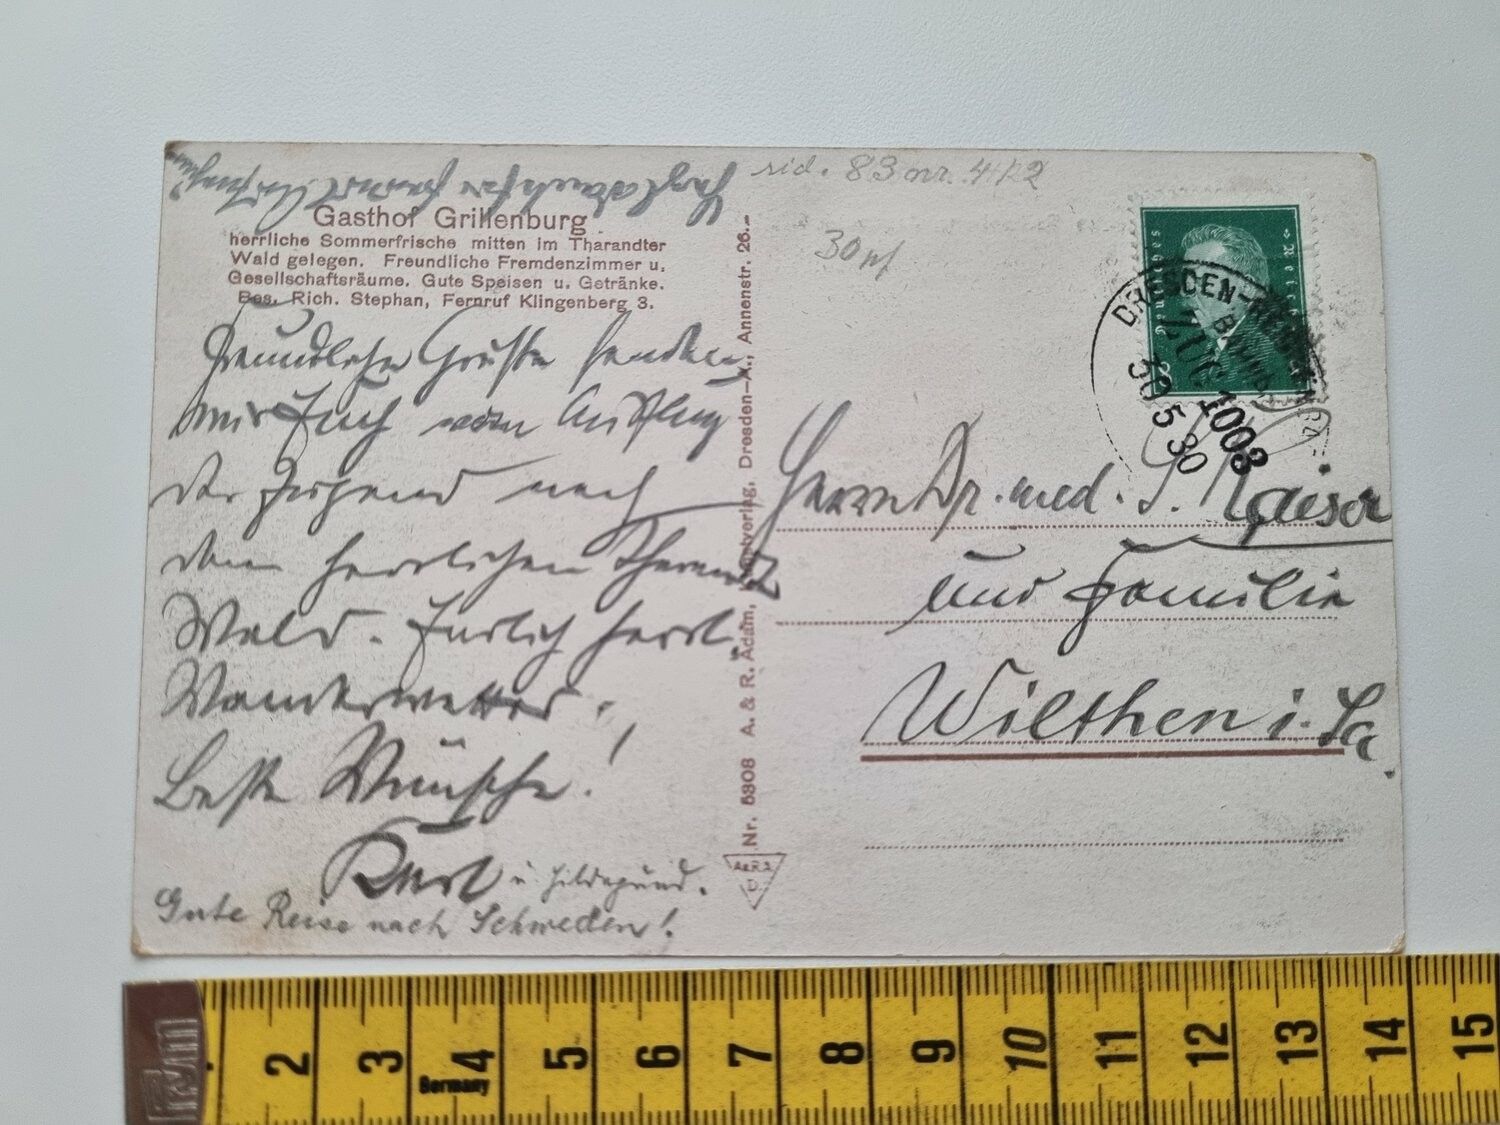 rid. 83 nr. 412
30 pf
Gasthof Grillenburg
herrliche Sommerfrische mitten im Tharandter
Wald gelegen. Freundliche Fremdenzimmer u.
Gesellschaftsräume. Gute Speisen u. Getränke.
Bes. Rich. Stephan, Fernruf Klingenberg 3.
Freundliche Grüße senden
wir Euch vom Ausflug
der Jugend nach
dem herrlichen Tharandt
Wald. Endlich herrl.
Wanderwetter!
Beste Wünsche!
Kurt u. Hildegund.
Gute Reise nach Schweden!
Nr. 5308 A. & R. Adam, Kunstverlag, Dresden-A., Annenstr. 26.
A&R.A.
D.
Deutsches Reich
DRESDEN-
BAHNP
ZUG 1003
30 5 30
Herrn Dr. med. S. Kaiser
und Familie
Wilthen i. Sa.
2 3 4 5 6 7 8 9 10 11 12 13 14 15
Germany